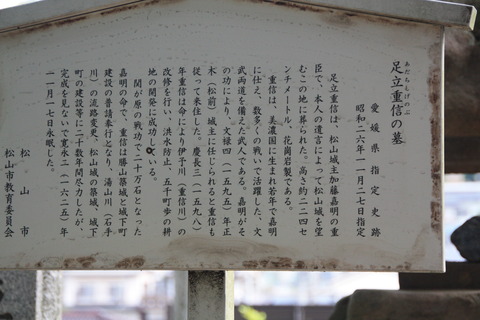 足立重信の墓
あだちしげのぶ
愛媛県指定史跡
昭和二六年一一月二七日指定
足立重信は、松山城主加藤嘉明の重
臣で、本人の遺言によって松山城を望
むこの地に葬られた。高さ約二二四セ
ンチメートル、花崗岩製である。
重信は、美濃国に生まれ若年で嘉明
に仕え、数多くの戦いで活躍した、文
武両道を備えた武人である。嘉明がそ
の功により、文禄四(一五九五)年正
木(松前)城主に任じられると重信も
従って来住した。慶長三(一五九八)
年重信は命により伊予川(重信川)の
改修を行い、洪水防止、五千町歩の耕
地の開発に成功している。
関が原の戦功で二十万石となった
嘉明の命で、重信は勝山築城と城下町
建設の普請奉行となり、湯山川(石手
川)の流路変更、松山城の築城、城下
町の建設等に二十数年間尽力したが、
完成を見ないで寛永二(一六二五)年
一一月一七日永眠した。
松山市
松山市教育委員会